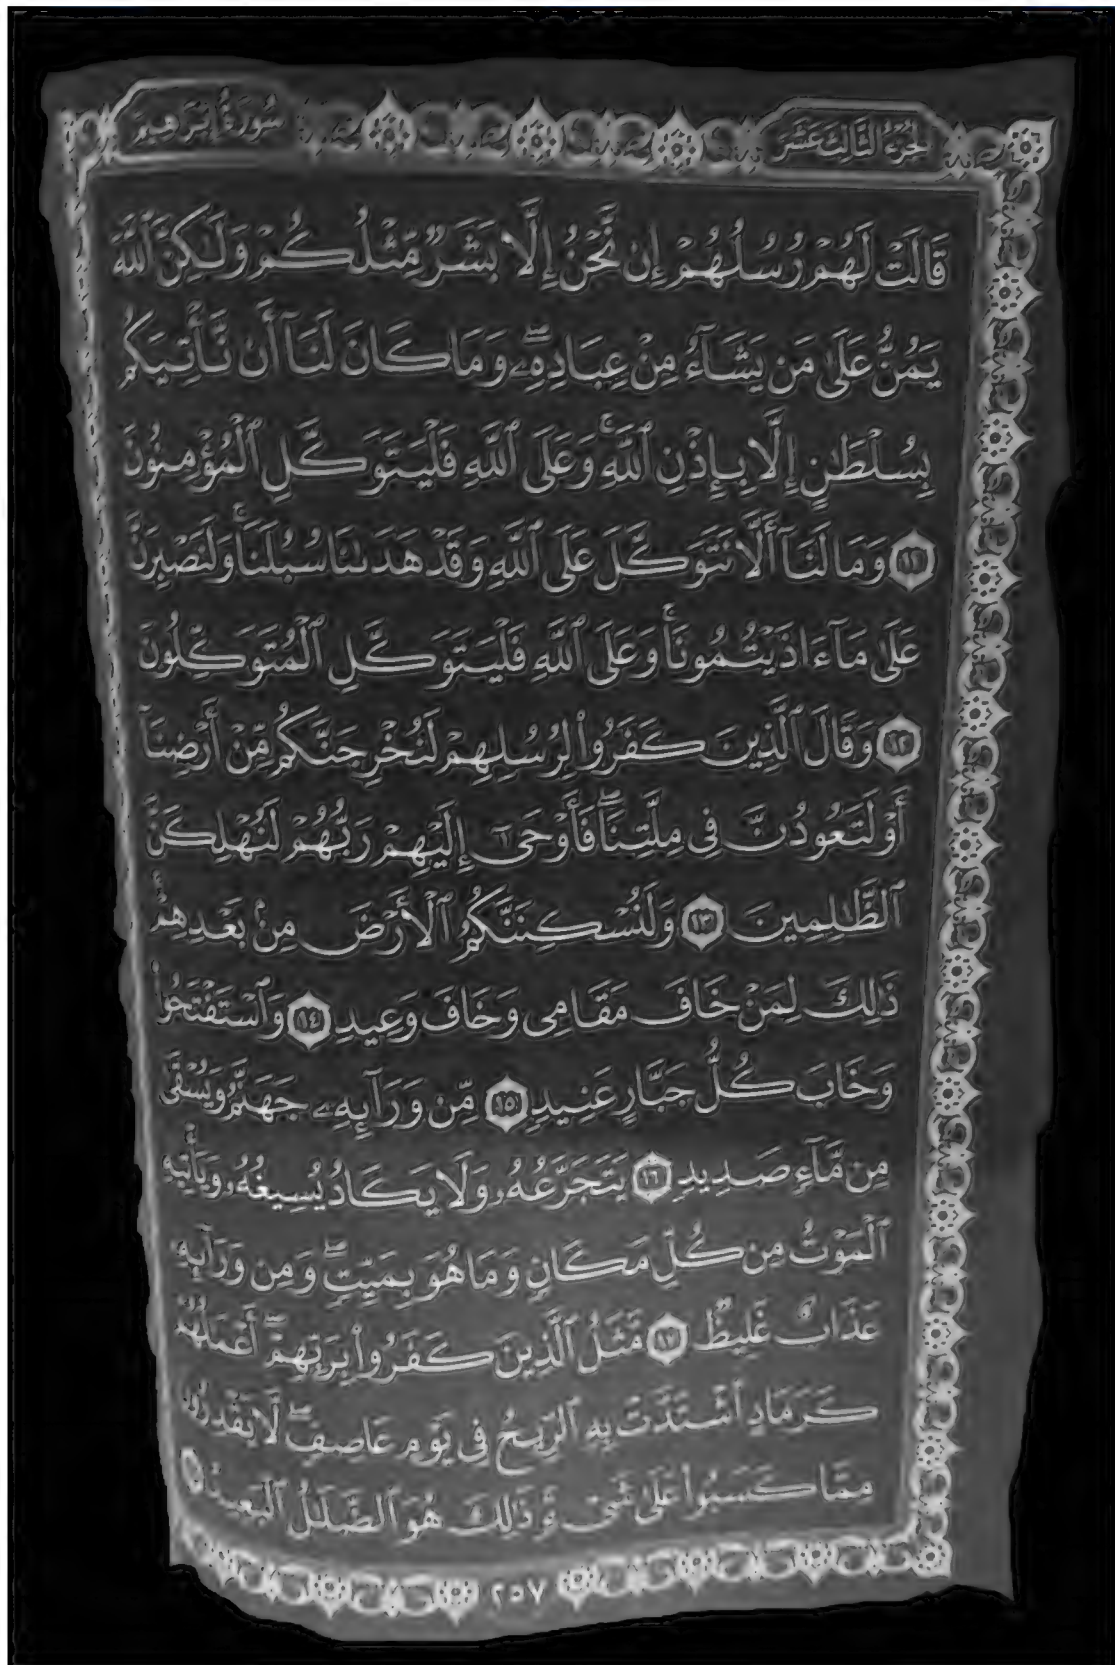 الجزء الثالث عشر
سورة إبراهيم
قَالَتْ لَهُمْ رُسُلُهُمْ إِن نَّحْنُ إِلَّا بَشَرٌ مِّثْلُكُمْ وَلَٰكِنَّ ٱللَّهَ
يَمُنُّ عَلَىٰ مَن يَشَآءُ مِنْ عِبَادِهِۦۖ وَمَا كَانَ لَنَآ أَن نَّأْتِيَكُم
بِسُلْطَٰنٍ إِلَّا بِإِذْنِ ٱللَّهِۚ وَعَلَى ٱللَّهِ فَلْيَتَوَكَّلِ ٱلْمُؤْمِنُونَ
١١ وَمَا لَنَآ أَلَّا نَتَوَكَّلَ عَلَى ٱللَّهِ وَقَدْ هَدَىٰنَا سُبُلَنَاۚ وَلَنَصْبِرَنَّ
عَلَىٰ مَآ ءَاذَيْتُمُونَاۚ وَعَلَى ٱللَّهِ فَلْيَتَوَكَّلِ ٱلْمُتَوَكِّلُونَ
١٢ وَقَالَ ٱلَّذِينَ كَفَرُوا۟ لِرُسُلِهِمْ لَنُخْرِجَنَّكُم مِّنْ أَرْضِنَآ
أَوْ لَتَعُودُنَّ فِى مِلَّتِنَاۖ فَأَوْحَىٰٓ إِلَيْهِمْ رَبُّهُمْ لَنُهْلِكَنَّ
ٱلظَّٰلِمِينَ ١٣ وَلَنُسْكِنَنَّكُمُ ٱلْأَرْضَ مِنۢ بَعْدِهِمْۚ
ذَٰلِكَ لِمَنْ خَافَ مَقَامِى وَخَافَ وَعِيدِ ١٤ وَٱسْتَفْتَحُوا۟
وَخَابَ كُلُّ جَبَّارٍ عَنِيدٍ ١٥ مِّن وَرَآئِهِۦ جَهَنَّمُ وَيُسْقَىٰ
مِن مَّآءٍ صَدِيدٍ ١٦ يَتَجَرَّعُهُۥ وَلَا يَكَادُ يُسِيغُهُۥ وَيَأْتِيهِ
ٱلْمَوْتُ مِن كُلِّ مَكَانٍ وَمَا هُوَ بِمَيِّتٍۖ وَمِن وَرَآئِهِۦ
عَذَابٌ غَلِيظٌ ١٧ مَّثَلُ ٱلَّذِينَ كَفَرُوا۟ بِرَبِّهِمْۖ أَعْمَٰلُهُمْ
كَرَمَادٍ ٱشْتَدَّتْ بِهِ ٱلرِّيحُ فِى يَوْمٍ عَاصِفٍۖ لَّا يَقْدِرُونَ
مِمَّا كَسَبُوا۟ عَلَىٰ شَىْءٍۚ ذَٰلِكَ هُوَ ٱلضَّلَٰلُ ٱلْبَعِيدُ
٢٥٧